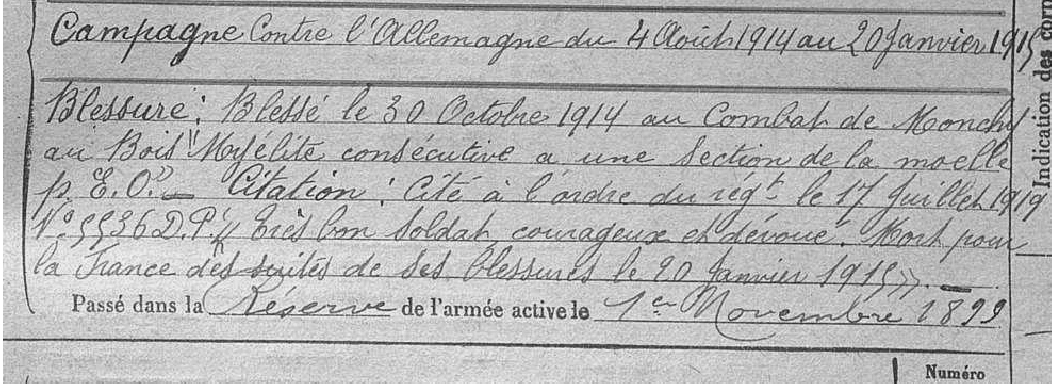 Campagne Contre l'Allemagne du 4 Août 1914 au 20 Janvier 1915
Blessure : Blessé le 30 Octobre 1914 au Combat de Monchy
au Bois "Myélite consécutive a une Section de la moelle
p. E. O." — Citation : Cité à l'ordre du rég<sup>t</sup> le 17 Juillet 1919
N° 5536 D.P. "Très bon soldat courageux et dévoué. Mort pour
la France des suites de ses blessures le 20 Janvier 1915 ». —
Passé dans la Réserve de l'armée active le 1er Novembre 1899
Numéro
Indication des corp